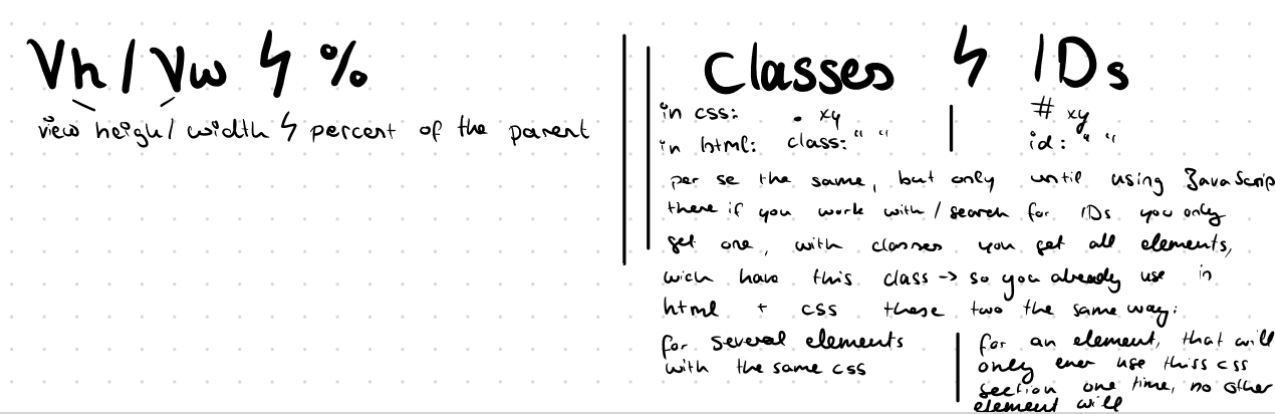 Vh / Vw ϟ %
view heigh/ width ϟ percent of the parent
Classes ϟ IDs
in css: . xy | # xy
in html: class: " " | id: " "
per se the same, but only until using JavaScrip
there if you work with / search for IDs you only
get one, with classes you get all elements,
wich have this class -> so you already use in
html + css these two the same way:
for several elements
with the same css
for an element, that will
only ever use thiss css
section one time, no other
element will